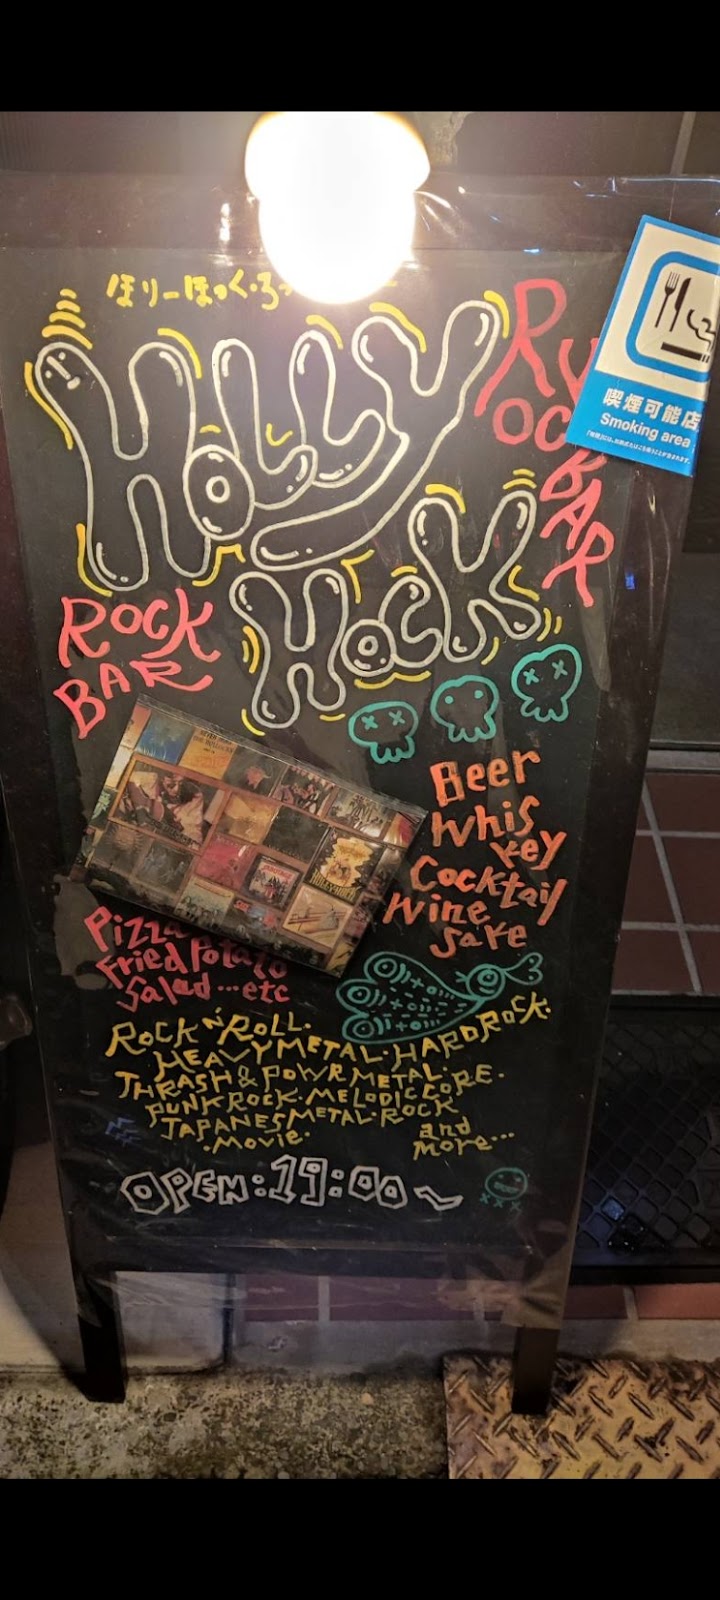 ほりーほっく・ろっ
HOLLY
HOCK
ROCK
BAR
ROCK
BAR
喫煙可能店
Smoking area
Beer
Whis
key
Cocktail
Wine
Sake
Pizza
Fried Potato
Salad...etc
ROCK N' ROLL.
HEAVY METAL. HARDROCK.
THRASH & POWR METAL.
PUNK ROCK. MELODICCORE.
JAPANES METAL. ROCK
.Movie.
and
more...
OPEN:19:00~